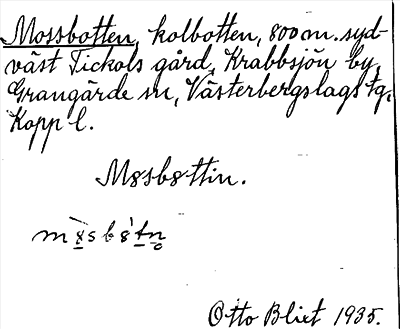 Mossbotten, kolbotten, 800 m. syd-
väst Tickols gård, Krabbsjön by,
Grangärde sn, Västerbergslags tg,
Kopp l.
M8sb8ttin.
Otto Blixt 1935.